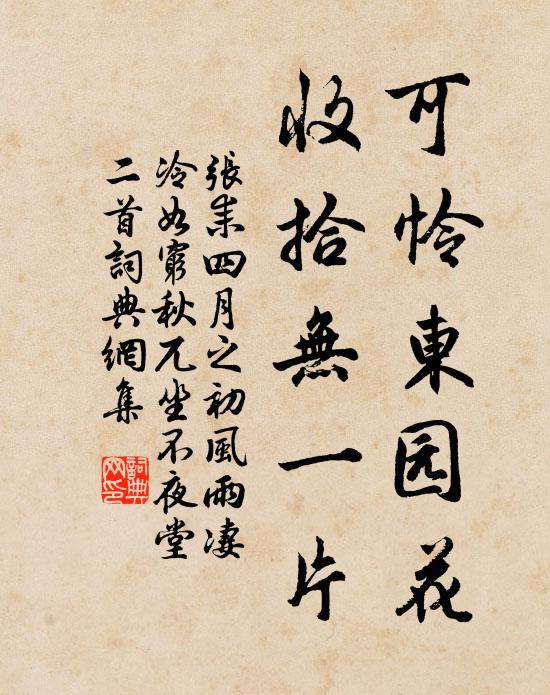 可怜東园花
收拾無一片
張耒四月之初風雨凄
冷如窮秋兀坐不夜堂
二首詞典網集
詞典網印